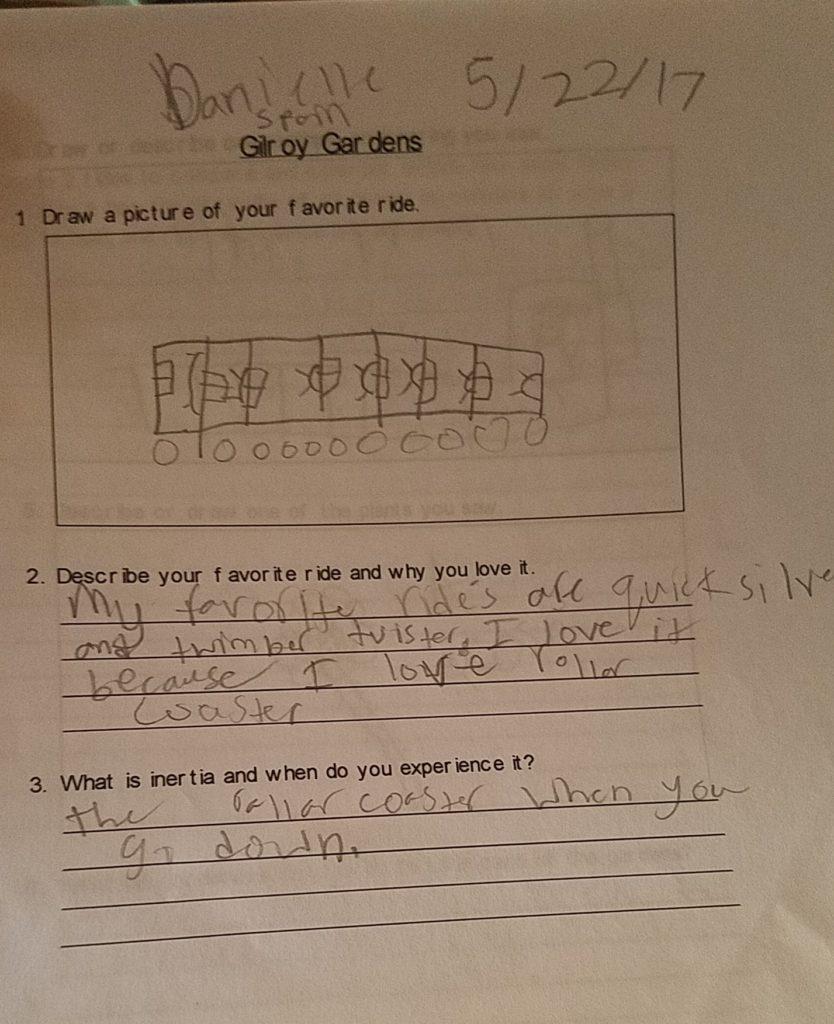 Danielle 5/22/17
Spain
Gilroy Gardens
1 Draw a picture of your favorite ride.
2. Describe your favorite ride and why you love it.
My favorite rides are quick silve
and twimber tvister. I love it
because I love rollar
coaster
3. What is inertia and when do you experience it?
the rallar coaster when you
go down.